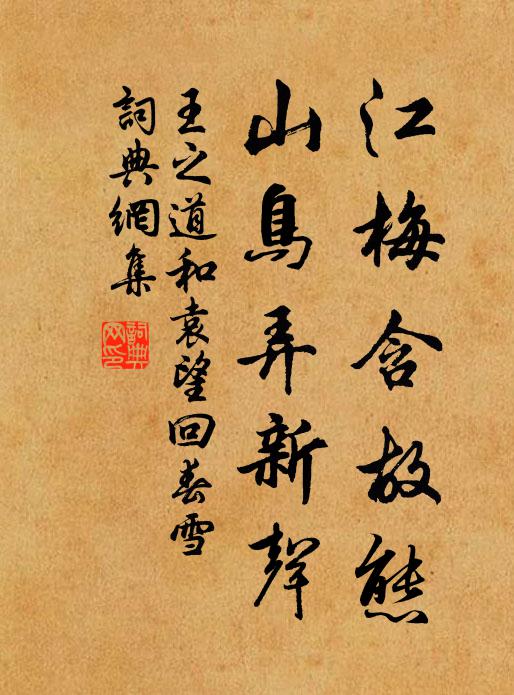 江梅含故態
山鳥弄新聲
王之道和袁望回春雪
詞典網集
詞典網印